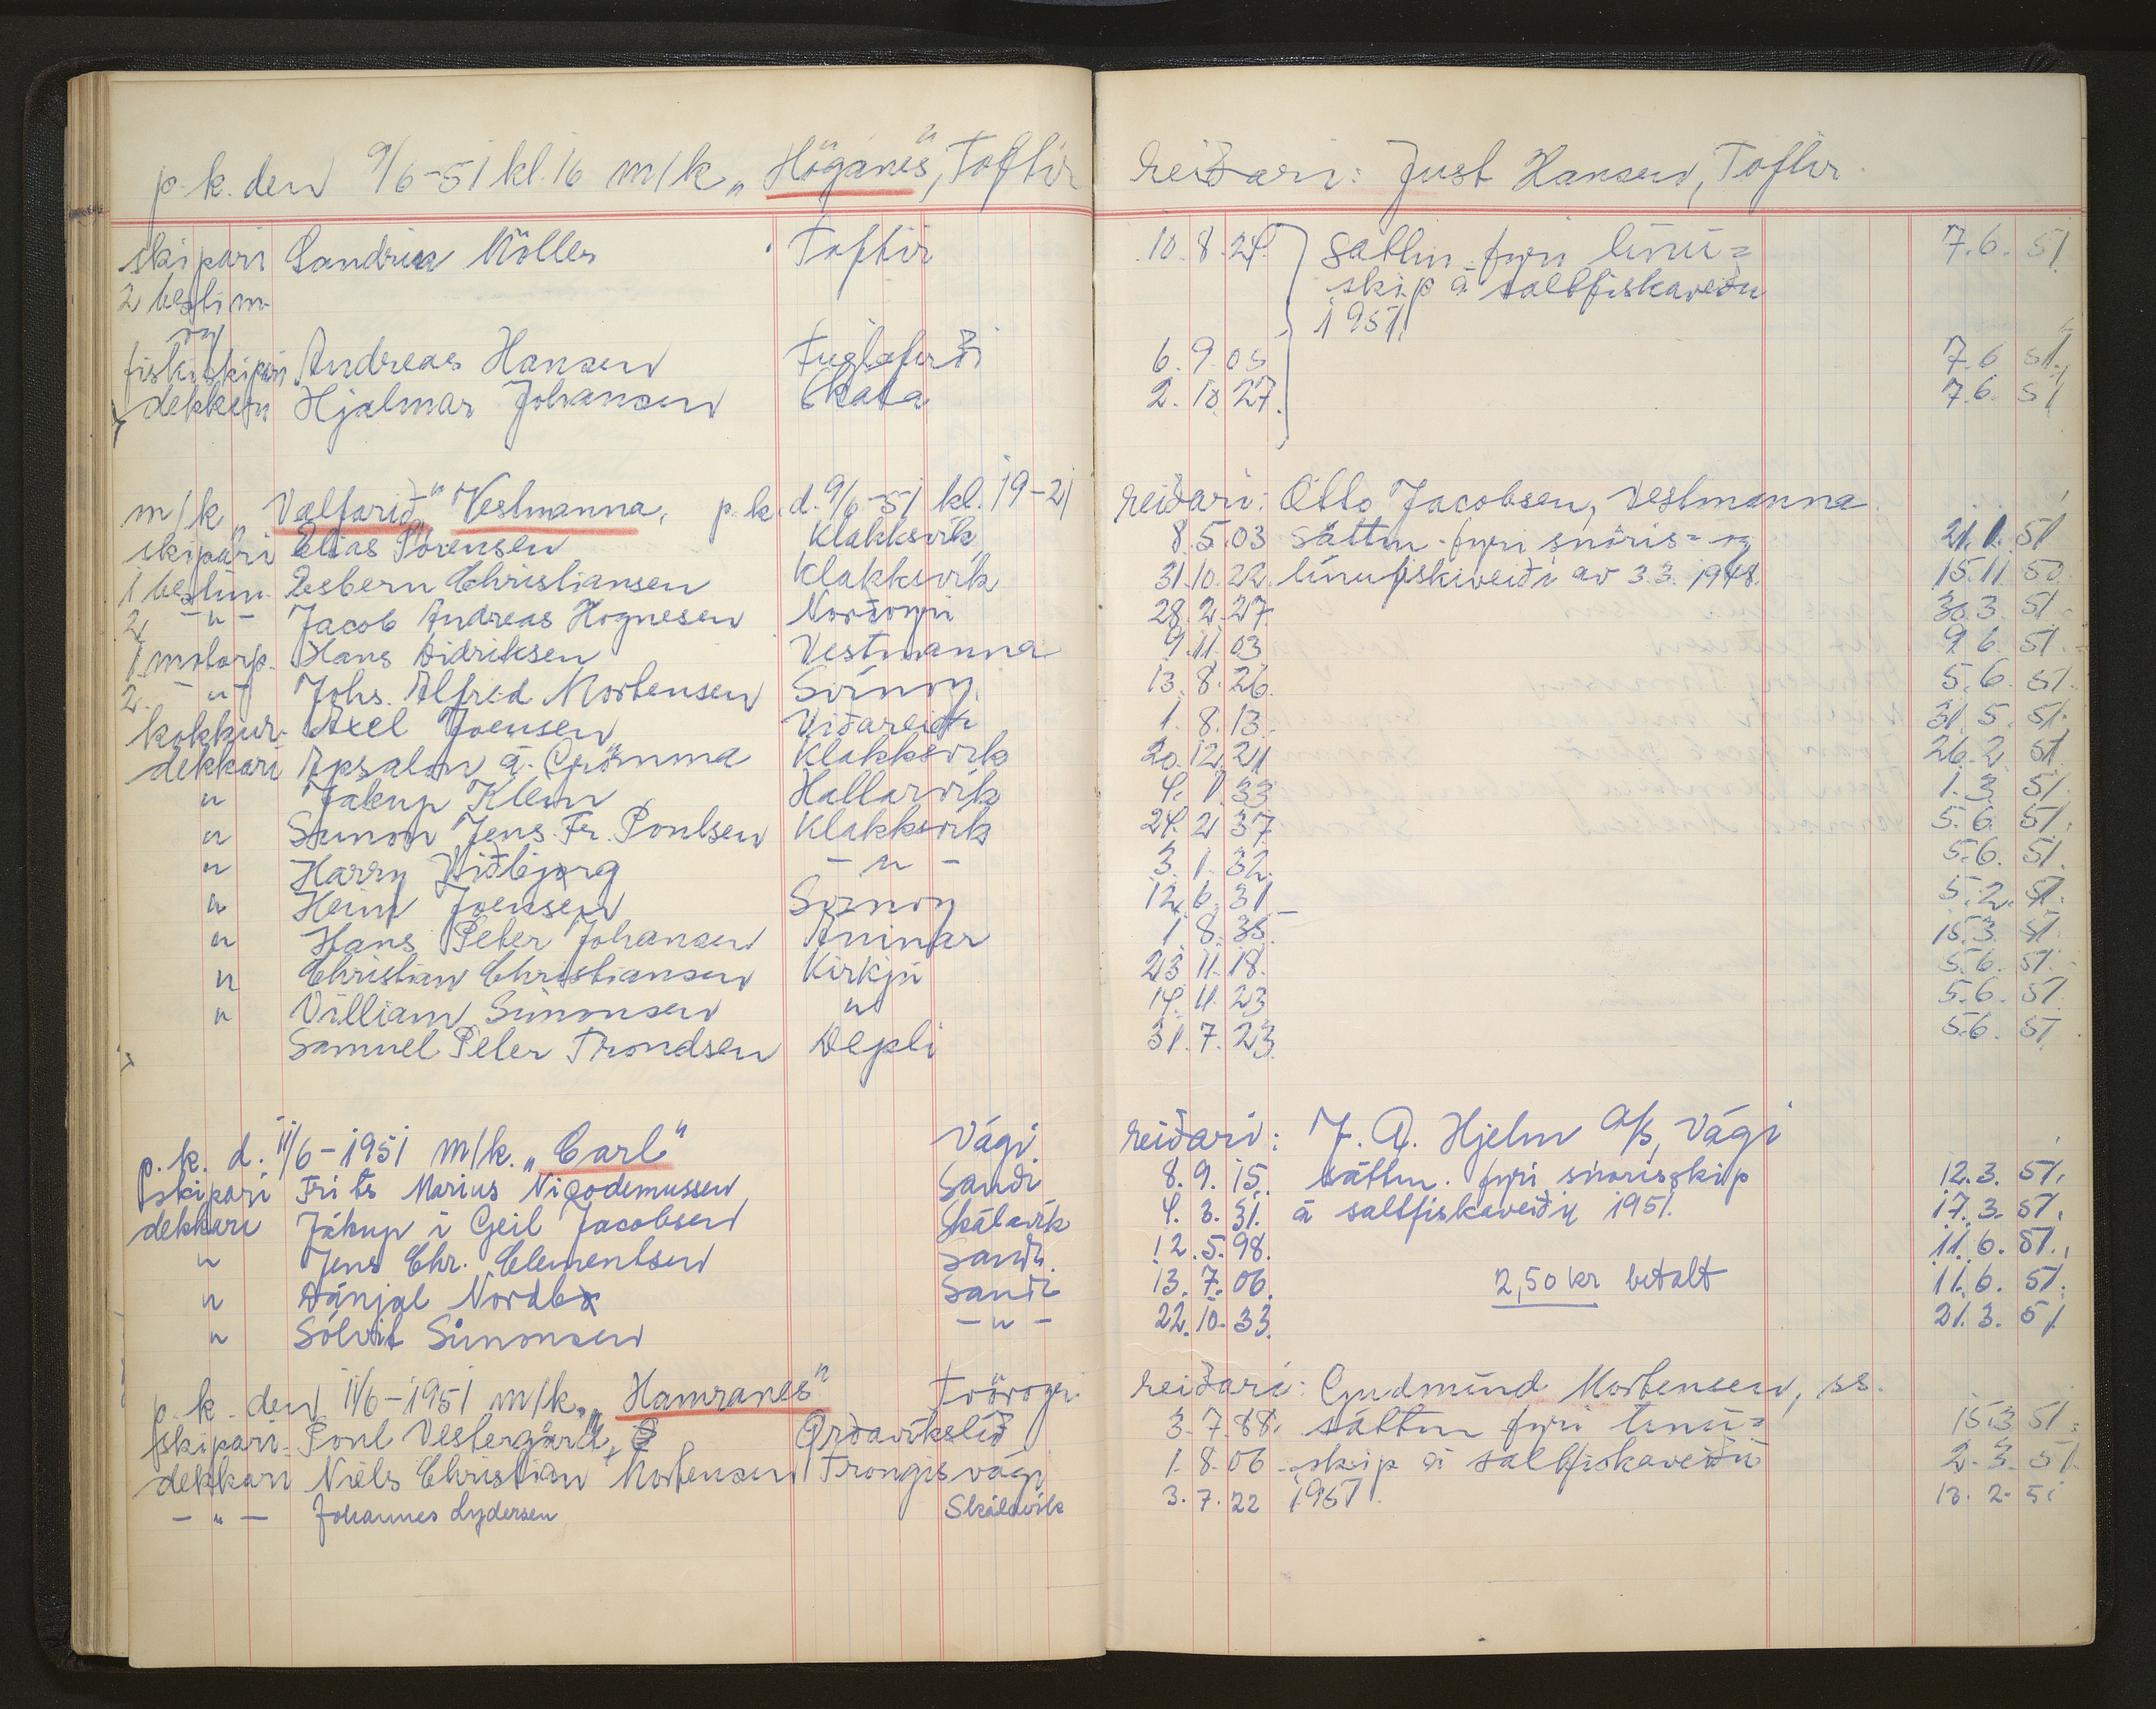 p.k. den 9/6-51 kl. 16 m/k „Höganes“, Toftir reiðari: Just Hansen, Toftir
skipari Sandrina Möller Toftir 10. 8. 24. sáttm. fyri línu= 7.6. 51
2 bestim. skip á saltfiskaveiðu
og 1951.
fiskiskipari Andreas Hansen Fuglafirði 6. 9. 05 7.6 51.
dekkari Hjalmar Johansen Skála 2. 10. 27. 7.6. 51
m/k „Valfarið“ Vestmanna, p.k. d. 9/6-51 kl. 19-21 reiðari: Otto Jacobsen, Vestmanna
skipari Elias Sörensen Klakksvík 8. 5. 03 sáttm. fyri snöris= og 21. 1. 51
1 bestim. Esbern Christiansen Klakksvík 31. 10. 22. línufiskiveiði av 3.3. 1948. 15. 11 50
2 -"- Jacob Andreas Hognesen Norðoyri 28. 2. 27 30. 3. 51
1 motorp. Hans Didriksen Vestmanna 9. 11. 03 9. 6. 51.
2. -"- Johs. Alfred Mortensen Svínoy 13. 8. 26. 5. 6. 51.
kokkur Axel Joensen Viðareiði 1. 8. 13. 31. 5. 51.
dekkari Apsalon á Grömma Klakksvík 20. 12. 21 26. 2. 51.
" Jákup Klein Hallarvík 4. 1. 33 1. 3. 51.
" Simon Jens Fr. Poulsen Klakksvík 24. 2. 37. 5. 6. 51.
" Harry Viðbjørg -"- 3. 1. 32. 5. 6. 51.
" Heini Joensen Svínoy 12. 6. 31 5. 2. 51.
" Hans Peter Johansen Árninar 1 8. 35. 15. 3. 51.
" Christian Christiansen Kirkju 23 11. 18. 5. 6. 51.
" Villiam Simonsen " 14. 11. 23 5. 6. 51
Samuel Peter Trondsen Depli 31. 7. 23. 5.6. 51
p.k. d. 11/6-1951 m/k. „Carl“ Vági. reiðari: J. A. Hjelm A/S, Vági
skipari Frits Marius Nicodemussen Sandi 8. 9. 15. sáttm. fyri snörisskip 12.3. 51.
dekkari Jákup í Geil Jacobsen Skálavík 4. 3. 31. á saltfiskaveiðu 1951. 17. 3. 51.
" Jens Chr. Clementsen Sandi. 12. 5. 98. 11. 6. 51.
" Dánjal Norðbø Sandi 13. 7. 06. 2,50 kr betalt 11. 6. 51.
" Sólvit Simonsen -"- 22. 10. 33. 21. 3. 51
p.k. den 11/6-1951 m/k „Hamranes“ Tvöroyri reiðari: Gudmund Mortensen, ss.
skipari Poul Vestergård, Ørðavíkslíð 3. 7. 88. sáttm fyri línu= 15.3 51.
dekkari Niels Christian Mortensen Trongisvági 1. 8. 06 skip á saltfiskaveiðu 2. 3. 51.
-"- Johannes Lydersen Skálavík 3. 7. 22 1951. 13. 2. 51